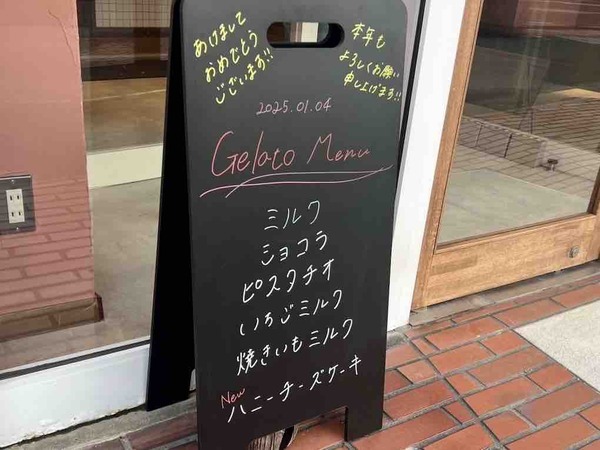 あけまして
おめでとう
ございます!!
本年も
よろしくお願い
申し上げます!!
2025.01.04
Gelato Menu
ミルク
ショコラ
ピスタチオ
いちごミルク
焼きいもミルク
New
ハニーチーズケーキ